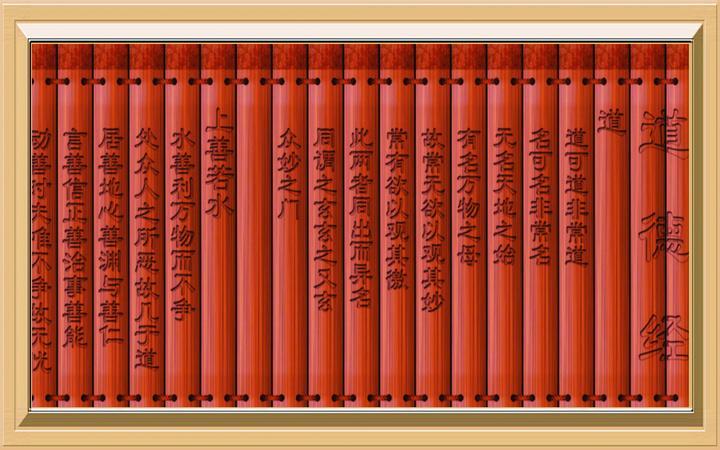 道德经
道
道可道非常道
名可名非常名
无名天地之始
有名万物之母
故常无欲以观其妙
常有欲以观其徼
此两者同出而异名
同谓之玄玄之又玄
众妙之门
上善若水
水善利万物而不争
处众人之所恶故几于道
居善地心善渊与善仁
言善信正善治事善能
动善时夫唯不争故无尤